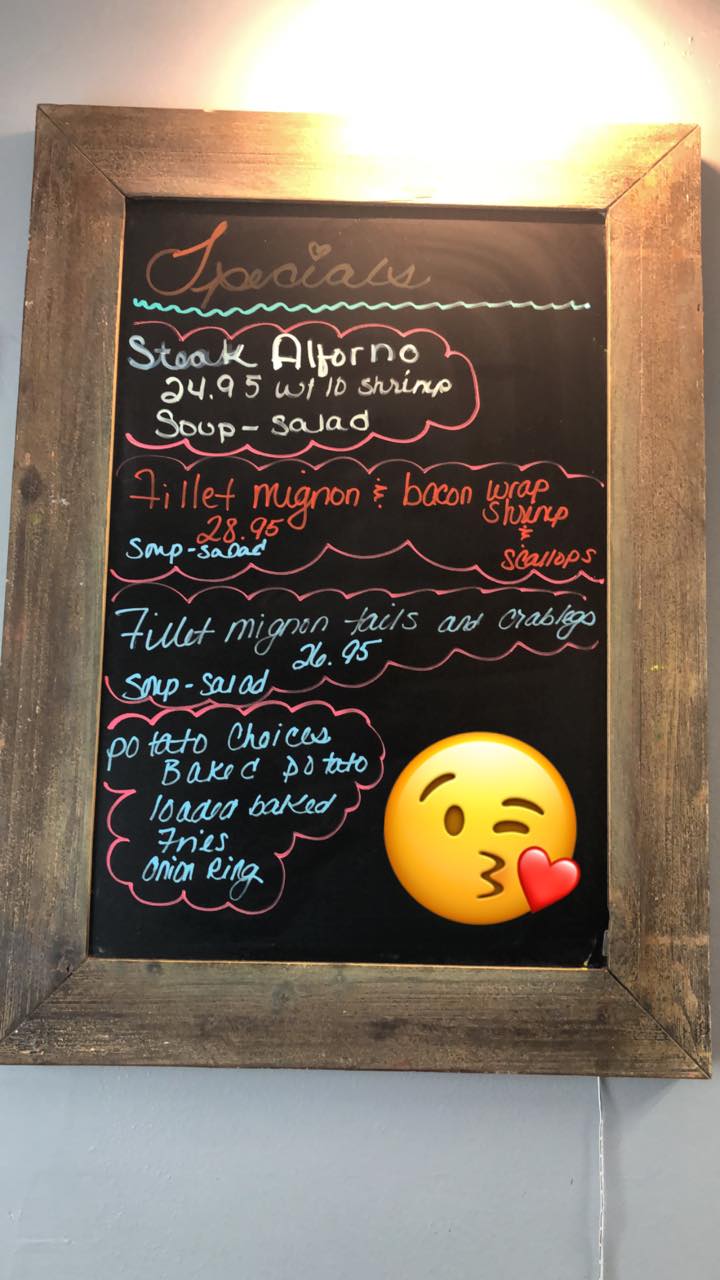 Specials
Steak Alforno
24.95 wt 10 shrimp
Soup - salad
Fillet mignon & bacon wrap
shrimp
&
scallops
28.95
Soup - salad
Fillet mignon tails and crablegs
26.95
Soup - salad
potato Choices
Baked potato
loaded baked
Fries
Onion Ring